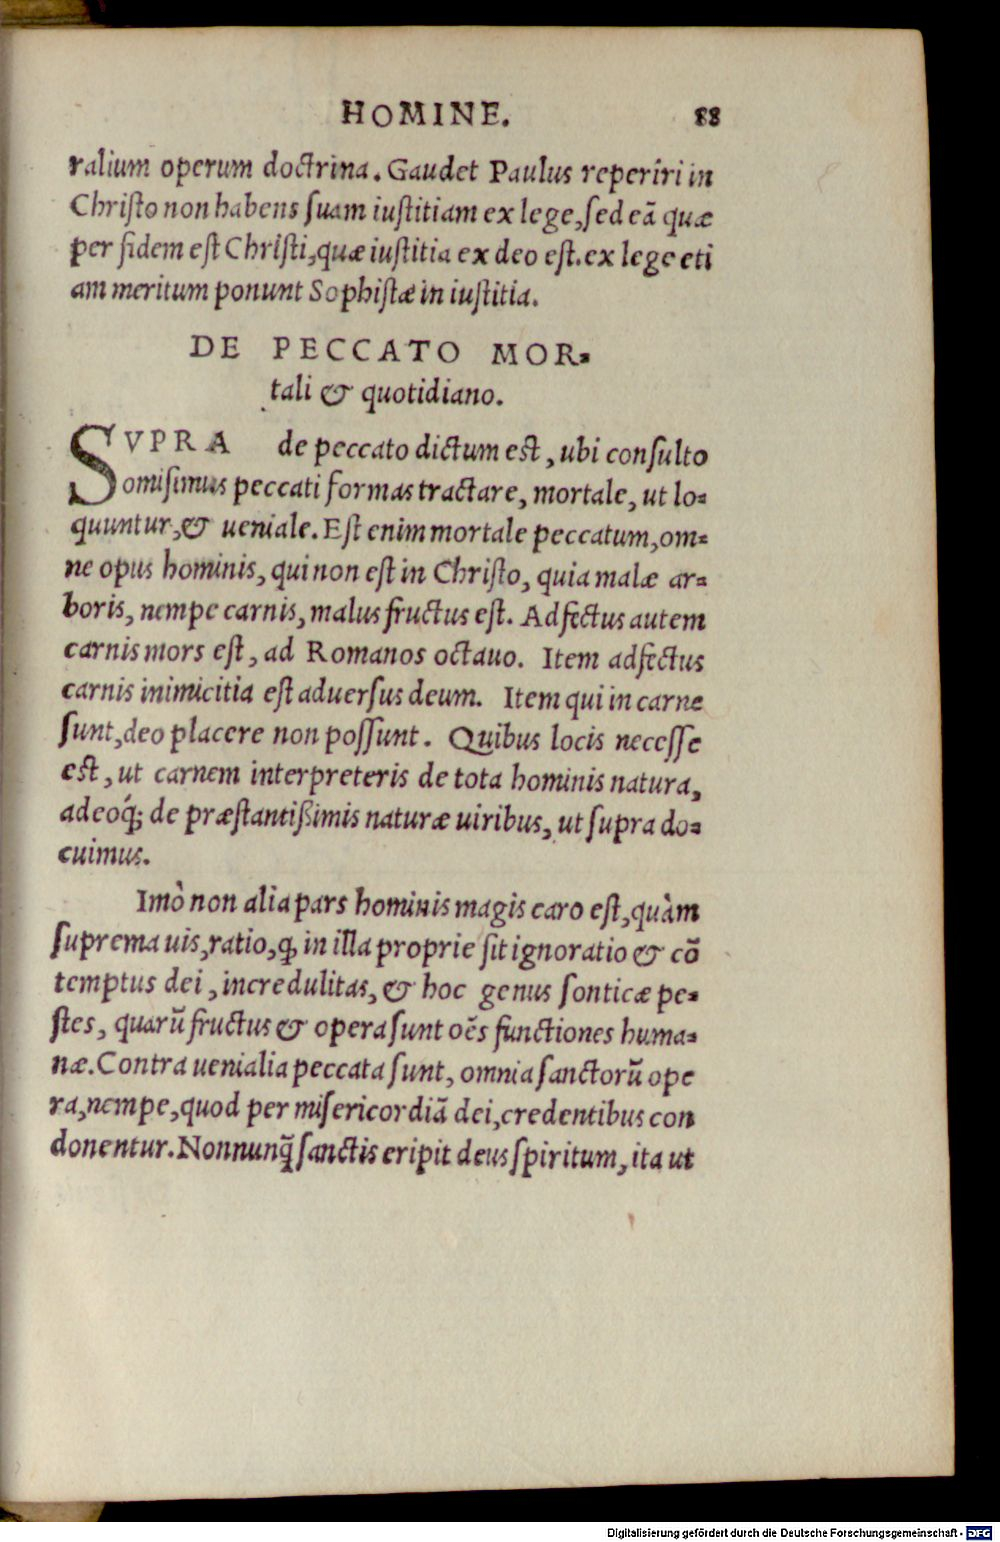 HOMINE. 88
ralium operum doctrina. Gaudet Paulus reperiri in
Chriſto non habens ſuam iuſtitiam ex lege, ſed eā quæ
per fidem eſt Chriſti, quæ iuſtitia ex deo eſt. ex lege eti
am meritum ponunt Sophiſtæ in iuſtitia.
DE PECCATO MOR-
tali & quotidiano.
SVPRA de peccato dictum eſt, ubi conſulto
omiſimus peccati formas tractare, mortale, ut lo-
quuntur, & ueniale. Eſt enim mortale peccatum, om-
ne opus hominis, qui non eſt in Chriſto, quia malæ ar-
boris, nempe carnis, malus fructus eſt. Adfectus autem
carnis mors eſt, ad Romanos octauo. Item adfectus
carnis inimicitia eſt aduerſus deum. Item qui in carne
ſunt, deo placere non poſſunt. Quibus locis neceſſe
eſt, ut carnem interpreteris de tota hominis natura,
adeoq́; de præſtantißimis naturæ uiribus, ut ſupra do-
cuimus.
Imò non alia pars hominis magis caro eſt, quàm
ſuprema uis, ratio, ꝙ in illa proprie ſit ignoratio & cō
temptus dei, incredulitas, & hoc genus ſonticæ pe-
ſtes, quarū fructus & opera ſunt oēs functiones huma-
næ. Contra uenialia peccata ſunt, omnia ſanctorū ope
ra, nempe, quod per miſericordiā dei, credentibus con
donentur. Nonnunq̃ ſanctis eripit deus ſpiritum, ita ut
Digitalisierung gefördert durch die Deutsche Forschungsgemeinschaft - DFG